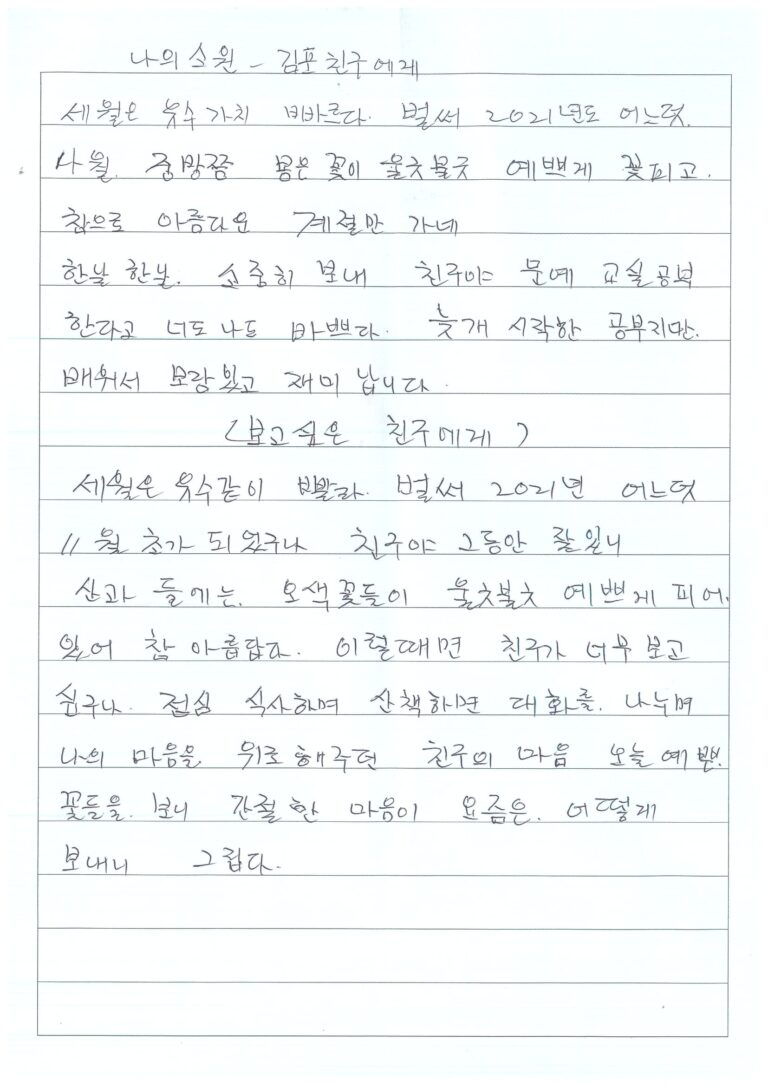 나의 소원 - 김포 친구에게
세월은 유수 가치 비바르다. 벌써 2021년도 어느덧.
사월. 중방쯤 봄은 꽃이 울긋불긋 예쁘게 꽃피고.
참으로 아름다운 계절만 가네
한날 한날. 소중히 보내 친구야 문예 교실공부
한다고 너도 나도 바쁘다. 늦개 시작한 공부지만.
배워서 보람있고 재미 납니다.
(보고싶은 친구에게)
세월은 유수같이 빠빨라. 벌써 2021년 어느덧
11 월 초가 되었구나 친구야 그동안 잘있니
산과 들에는. 오색꽃들이 울긋불긋 예쁘게 피어.
있어 참 아릅답다. 이럴때면 친구가 너무 보고
싶구나. 점심 식사하며 산책하면 대화를. 나누며
나의 마음을 위로해주던 친구의 마음 오늘 예쁜.
꽃들을. 보니 간절한 마음이 요즘은. 어떻게
보내니 그립다.